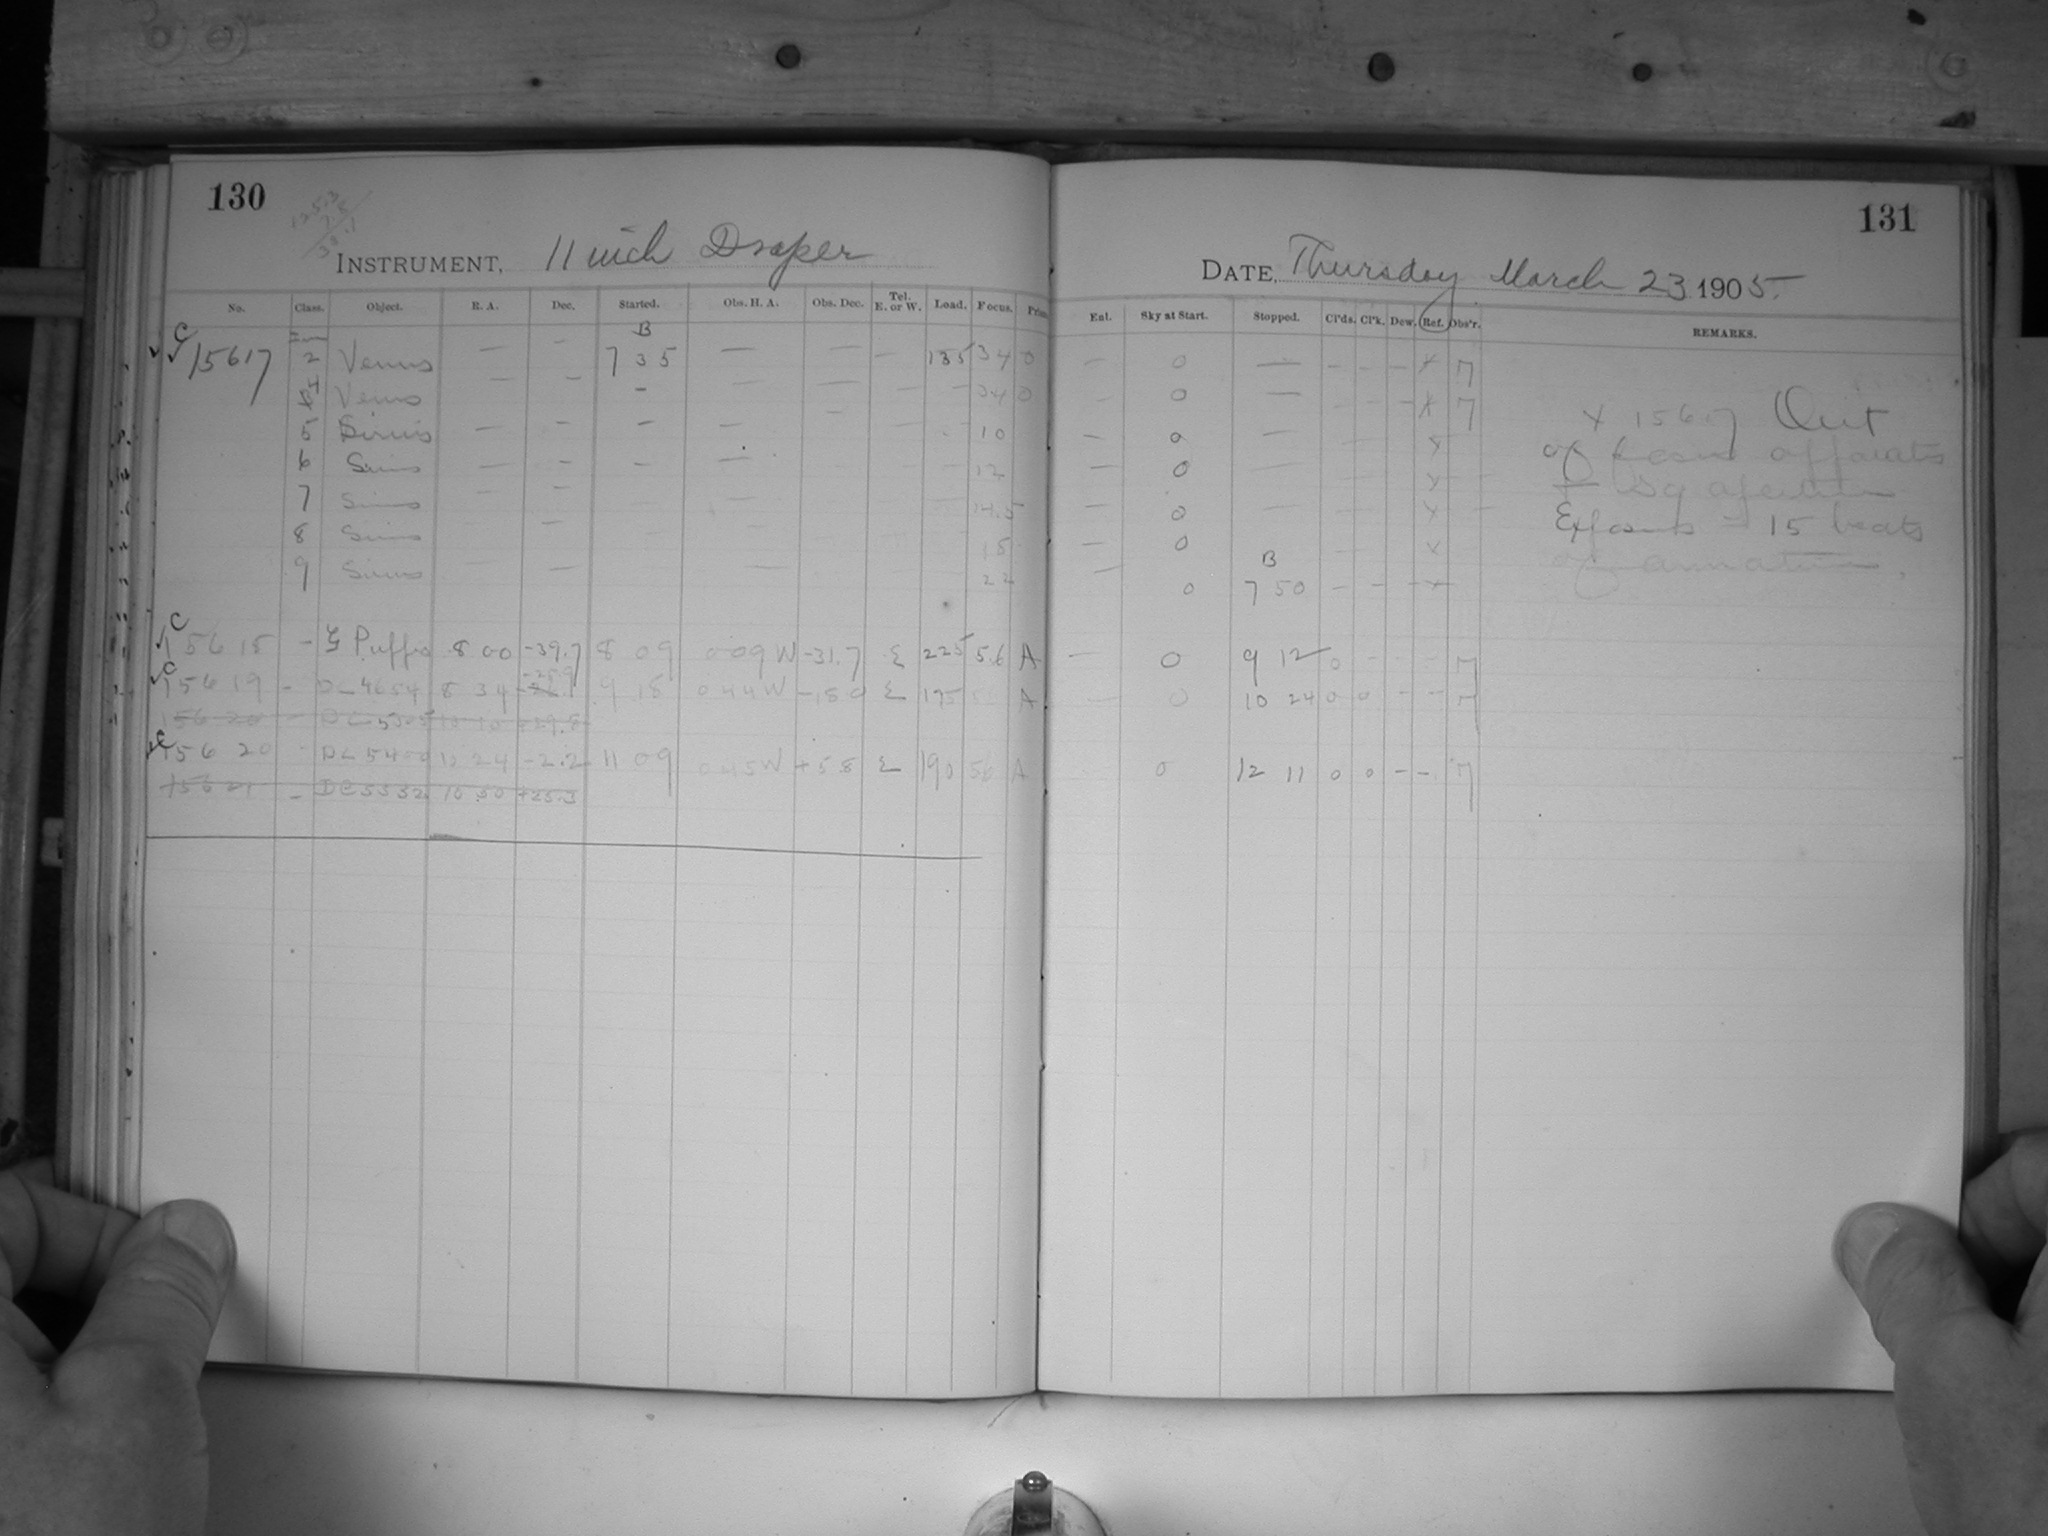 130
INSTRUMENT, 11 inch Draper
No. Class. Object. R. A. Dec. Started. Obs. H. A. Obs. Dec. Tel. E. or W. Load. Focus.
B
C
15617 2 Venus — — 7 35 — — — 135 34 0
4 Venus — — — — — — — 34 0
5 Sirius — — — — — 10
6 Sirius — — — — 12
7 Sirius — — — — 14.5
8 Sirius — — 15
9 Sirius — — — 22
C
15618 — ξ Puppis 8 00 -39.7 8 09 0 09 W -31.7 E 225 5.6 A
C
15619 - DC 4654 8 34 9 18 0 44 W -18 0 E 195 A
15620 - DC 10 10 +39.8
C
15620 - DC 5400 10 24 -2.2 11 09 0 45 W +5.8 E 190 56 A
15621 - DC 5532 10 50 +25.3
131
DATE, Thursday March 23 1905.
Ent. Sky at Start. Stopped. Cl'ds. Cl'k. Dew. Ref. Obs'r. REMARKS.
— 0 — - - - x
— 0 — - - - x
— 0 — x
— 0 x
— 0 — x
— 0 x
B
— 0 7 50 - - - x
x 15617 Out
of
15 beats
of
— 0 9 12 0 - - -
— 0 10 24 0 0 - -
0 12 11 0 0 - -